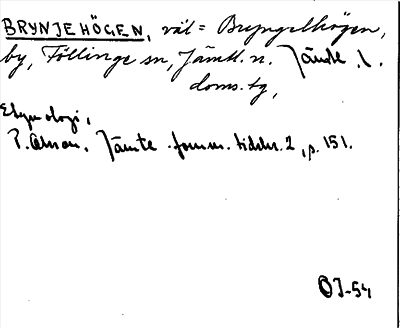 BRYNJEHÖGEN, väl = Bryngelhögen,
by, Föllinge sn, Jämtl. n. Jämtl. l.
doms. tg,
Etymologi,
P. Olsson, Jämte fornm. tidskr. 2, p. 151.
OJ-54